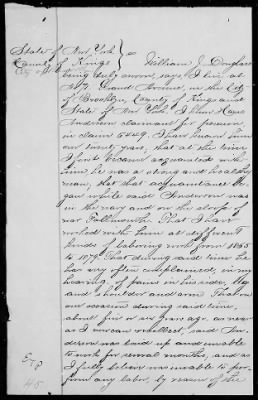 State of New York
County of Kings
City of
William J. Douglass
being duly sworn, says I live at
No Grand Avenue, in the City
of Brooklyn, County of Kings and
State of New York. I know
Anderson claimant for pension
in claim 5449. I have known him
over twenty years, that at the time
I first became acquainted with
him he was a strong and healthy
man, that that acquaintance be-
gan while said Anderson was
in the navy and on the sloop of
war Falmouth. That I have
worked with him at different
kinds of laboring work from 1865
to 1879. That during said time he
has very often complained, in my
hearing, of pains in his side, leg
and shoulder and arm. That on
one occasion during said time,
about five or six years ago, as near
as I now can recollect, said An-
derson was laid up and unable
to work for several months, and as
I fully believe was unable to per-
form any labor, by reason of the